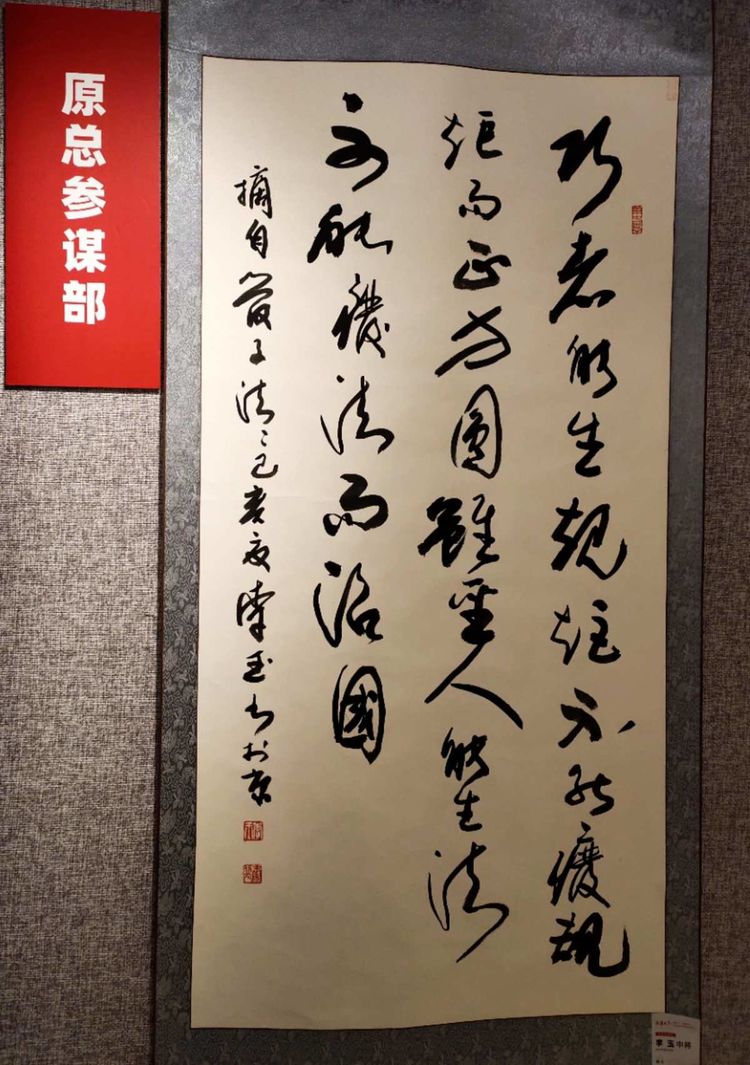 原总参谋部
巧者能生规矩不能废规
矩而正方圆虽圣人能生法
不能废法而治國
摘自管子法法己亥夏李玉书於京
李玉中将